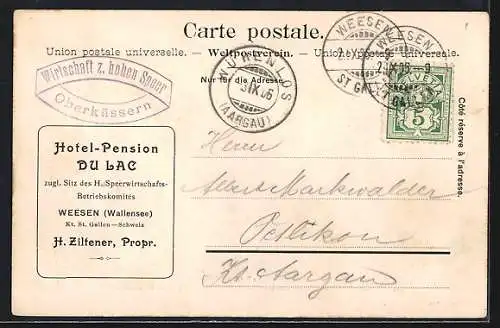 Carte postale.
Union postale universelle. — Weltpostverein. — Union postale universale.
Nur für die Adresse.
Côté réservé à l'adresse.
Wirtschaft z. hohen Speer
Oberkässern
WÜRENLOS
IX 06
(AARGAU)
WEESEN
WEESEN
IX.06-9
HELVETIA
5
Hotel-Pension
DU LAC
zugl. Sitz des H. Speerwirtschafts-
Betriebskomites
WEESEN (Wallensee)
Kt. St. Gallen — Schweiz
H. Ziltener, Propr.
Herrn
Albert Markwalder
Oetlikon
Kt. Aargau